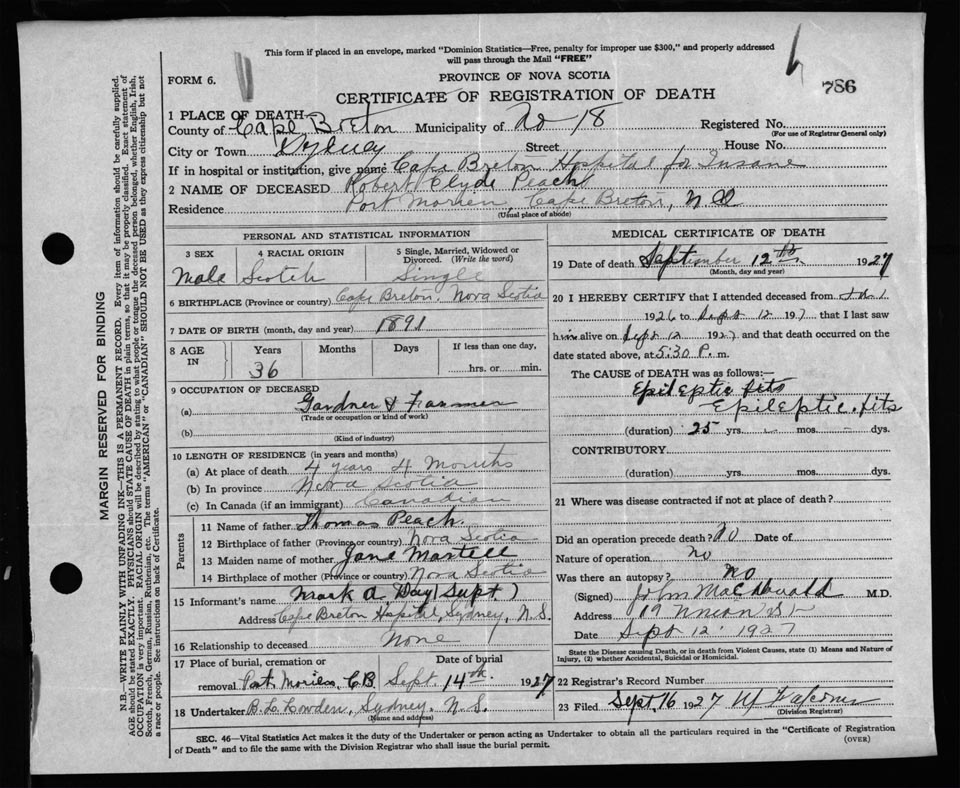 This form if placed in an envelope, marked "Dominion Statistics—Free, penalty for improper use $300," and properly addressed
will pass through the Mail "FREE"
FORM 6.
PROVINCE OF NOVA SCOTIA
786
CERTIFICATE OF REGISTRATION OF DEATH
1 PLACE OF DEATH—
County of Cape Breton Municipality of No 18 Registered No.
(For use of Registrar General only)
City or Town Sydney Street House No.
If in hospital or institution, give name Cape Breton Hospital for Insane
2 NAME OF DECEASED Robert Clyde Peach
Residence Port Morien, Cape Breton, N.S.
(Usual place of abode)
PERSONAL AND STATISTICAL INFORMATION
3 SEX 4 RACIAL ORIGIN 5 Single, Married, Widowed or
Divorced. (Write the word)
Male Scotch Single
6 BIRTHPLACE (Province or country) Cape Breton, Nova Scotia
7 DATE OF BIRTH (month, day and year) 1891
8 AGE IN Years Months Days If less than one day,
36 hrs. or min.
9 OCCUPATION OF DECEASED
(a) Gardner & Farmer
(Trade or occupation or kind of work)
(b)
(Kind of industry)
10 LENGTH OF RESIDENCE (in years and months)
(a) At place of death 4 years 4 Months
(b) In province Nova Scotia
(c) In Canada (if an immigrant) Canadian
Parents
11 Name of father Thomas Peach.
12 Birthplace of father (Province or country) Nova Scotia
13 Maiden name of mother Jane Martell
14 Birthplace of mother (Province or country) Nova Scotia
15 Informant's name Mark A Day (Supt)
Address Cape Breton Hospital, Sydney, N.S.
16 Relationship to deceased None
17 Place of burial, cremation or Date of burial
removal Port Morien, C.B Sept. 14th. 1927
18 Undertaker Sydney. N.S.
(Name and address)
MEDICAL CERTIFICATE OF DEATH
19 Date of death September 12th 1927
(Month, day and year)
20 I HEREBY CERTIFY that I attended deceased from
1926 to Sept 12 1927 that I last saw
him alive on Sept 12 1927 and that death occurred on
date stated above, at 5:30 P. m.
The CAUSE OF DEATH was as follows:—
Epileptic fits
Epileptic fits
(duration) 25 yrs. mos. dys.
CONTRIBUTORY
(duration) yrs. mos. dys.
21 Where was disease contracted if not at place of death?
Did an operation precede death? No Date of
Nature of operation no
Was there an autopsy? No
(Signed) John MacDonald M.D.
Address 19 Union St
Date Sept 12. 1927
State the Disease causing Death, or in death from Violent Causes, state (1) Means and Nature of
Injury, (2) whether Accidental, Suicidal or Homicidal.
22 Registrar's Record Number
23 Filed Sept. 16 1927
(Division Registrar)
SEC. 46—Vital Statistics Act makes it the duty of the Undertaker or person acting as Undertaker to obtain all the particulars required in the "Certificate of Registration
of Death" and to file the same with the Division Registrar who shall issue the burial permit.
(OVER)
MARGIN RESERVED FOR BINDING
N.B.—WRITE PLAINLY WITH UNFADING INK—THIS IS A PERMANENT RECORD. Every item of information should be carefully supplied.
AGE should be stated EXACTLY. PHYSICIANS should STATE CAUSE OF DEATH in plain terms, so that it may be properly classified. Exact statement of
OCCUPATION is very important. RACIAL ORIGIN will be described by stating to what people or tongue the deceased person belonged, whether English, Irish,
Scotch, French, German, Russian, Ruthenian, etc. The terms "AMERICAN" or "CANADIAN" SHOULD NOT BE USED as they express citizenship but not
a race or people. See instructions on back of Certificate.